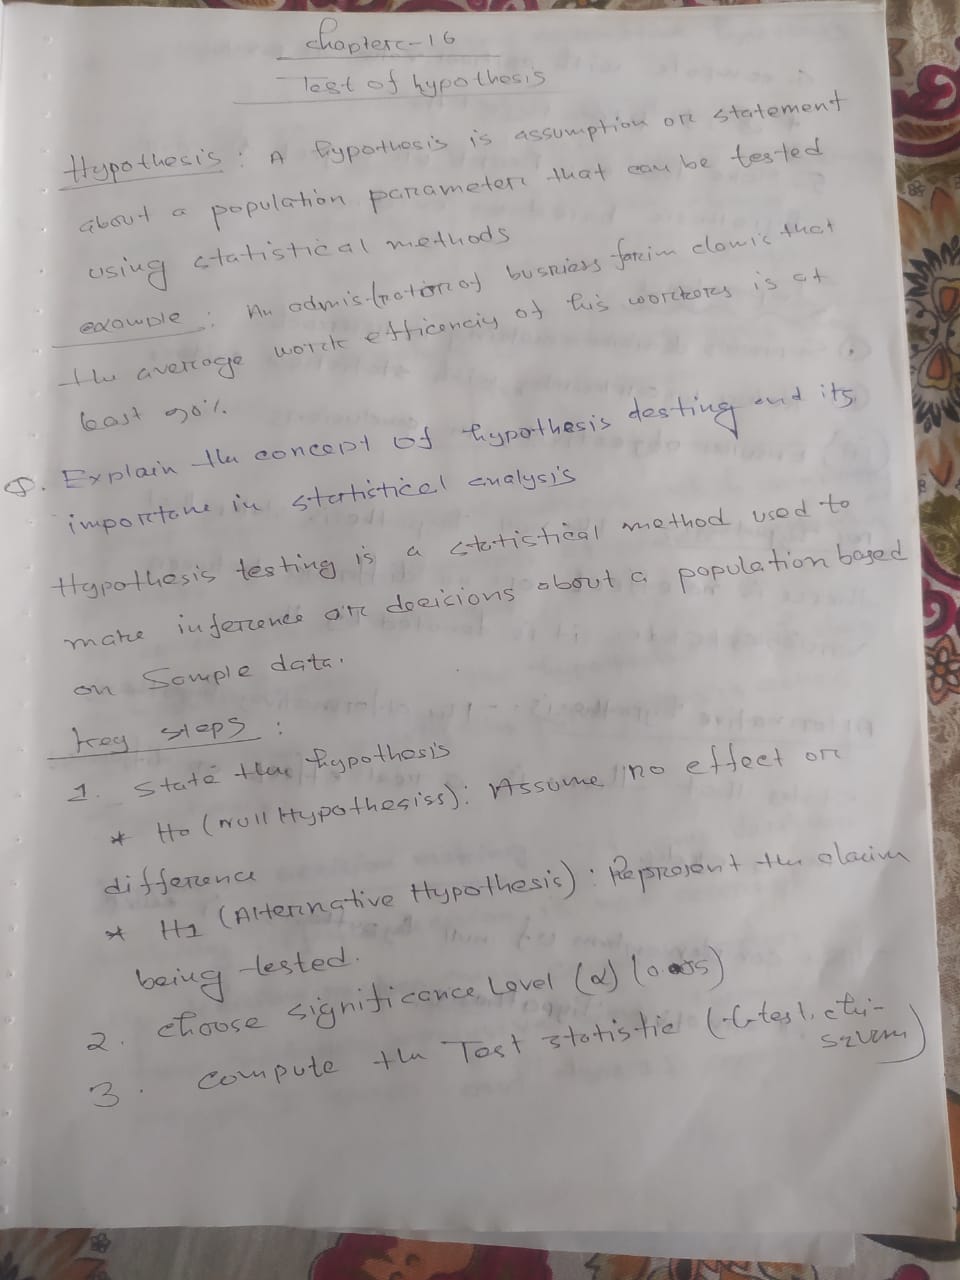 Chapter-16
Test of hypothesis
Hypothesis : A hypothesis is assumption or statement
about a population parameter that can be tested
using statistical methods
example : An adminstration of business farim clamis that
the average work efficenciy of his workers is at
least 90%.
Q. Explain the concept of hypothesis testing and its
importane in statistical analysis
Hypothesis testing is a statistical method used to
make inference or decicions about a population based
on Sample data.
key steps :
1. State the hypothesis
* H0 (Null Hypothesiss): Assume no effect or
difference
* H1 (Alternative Hypothesis) : Represent the claim
being tested.
2. choose significance Level (α) (0.05)
3. compute the Test statistic (t-test, chi-